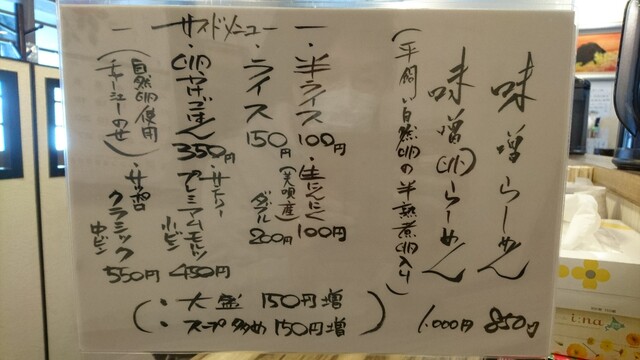 味噌らーめん 850円
味噌卵らーめん 1.000円
(平飼い自然卵の半熟煮卵入り)
ー サイドメニュー ー
・半ライス 100円
・生にんにく(美唄産) 100円
・ライス 150円
ダブル 200円
・卵かけごはん 350円
(自然卵使用
チャーシューのせ)
・サッポロ
クラシック
中ビン 550円
・サントリー
プレミアムモルツ
小ビン 450円
(・大盛 150円増
・スープ多め 150円増)
i:na